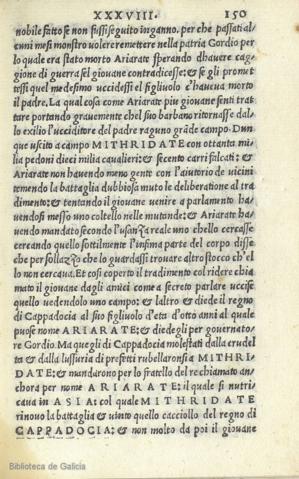 XXXVIII. 150
nobile fatto se non fussi seguito inganno. per che passati al
cuni mesi monstro volere remettere nella patria Gordio per
lo quale era stato morto Ariarate sperando dhavere cag
gione di guerra sel giovane contradicesse: & se gli promet
tessi quel medesimo uccidessi el figliuolo c'haueva morto
il padre. La qual cosa come Ariarate piu giovane senti trat
tare portando gravemente chel suo barbano ritornasse dal
lo exilio l'uccisitore del padre raguno grãde campo. Dun
que uscito a campo MITHRIDATE con ottanta mi
lia pedoni dieci milia cavalieri: & secento carri falcati: &
Ariarate non havendo meno gente con l'aiutorio de vicini
temendo la battaglia dubbiosa muto le deliberatione al tra
dimento: & tentando il giovane venire a parlamento ha
vendosi messo uno coltello nelle mutande: & Ariarate ha
vendo mandato secondo l'usanza reale uno chello cercasse
cercando quello sottilmente l'infima parte del corpo disse
che per sollazzo che lo guardassi trouare altro stocco ch'el
lo non cercava. Et cosi coperto il tradimento col ridere chia
mato il giovane dagli amici come a secreto parlare uccise
quello vedendolo uno campo: & laltro & diede il regno
di Cappadocia al suo figliuolo d'eta d'otto anni al quale
puose nome ARIARATE: & diedegli per governato
re Gordio. Ma quegli di Cappadocia molestati dalla crudel
ta & dalla lussuria di prefetti rubellaronsi a MITHRI-
DATE: & mandarono per lo fratello del re chiamato an
chora per nome ARIARATE: il quale si nutri
caua in ASIA: col quale MITHRIDATE
rinovo la battaglia & uinto quello cacciollo del regno di
CAPPADOCIA: & non molto da poi il giovane
Biblioteca de Galicia